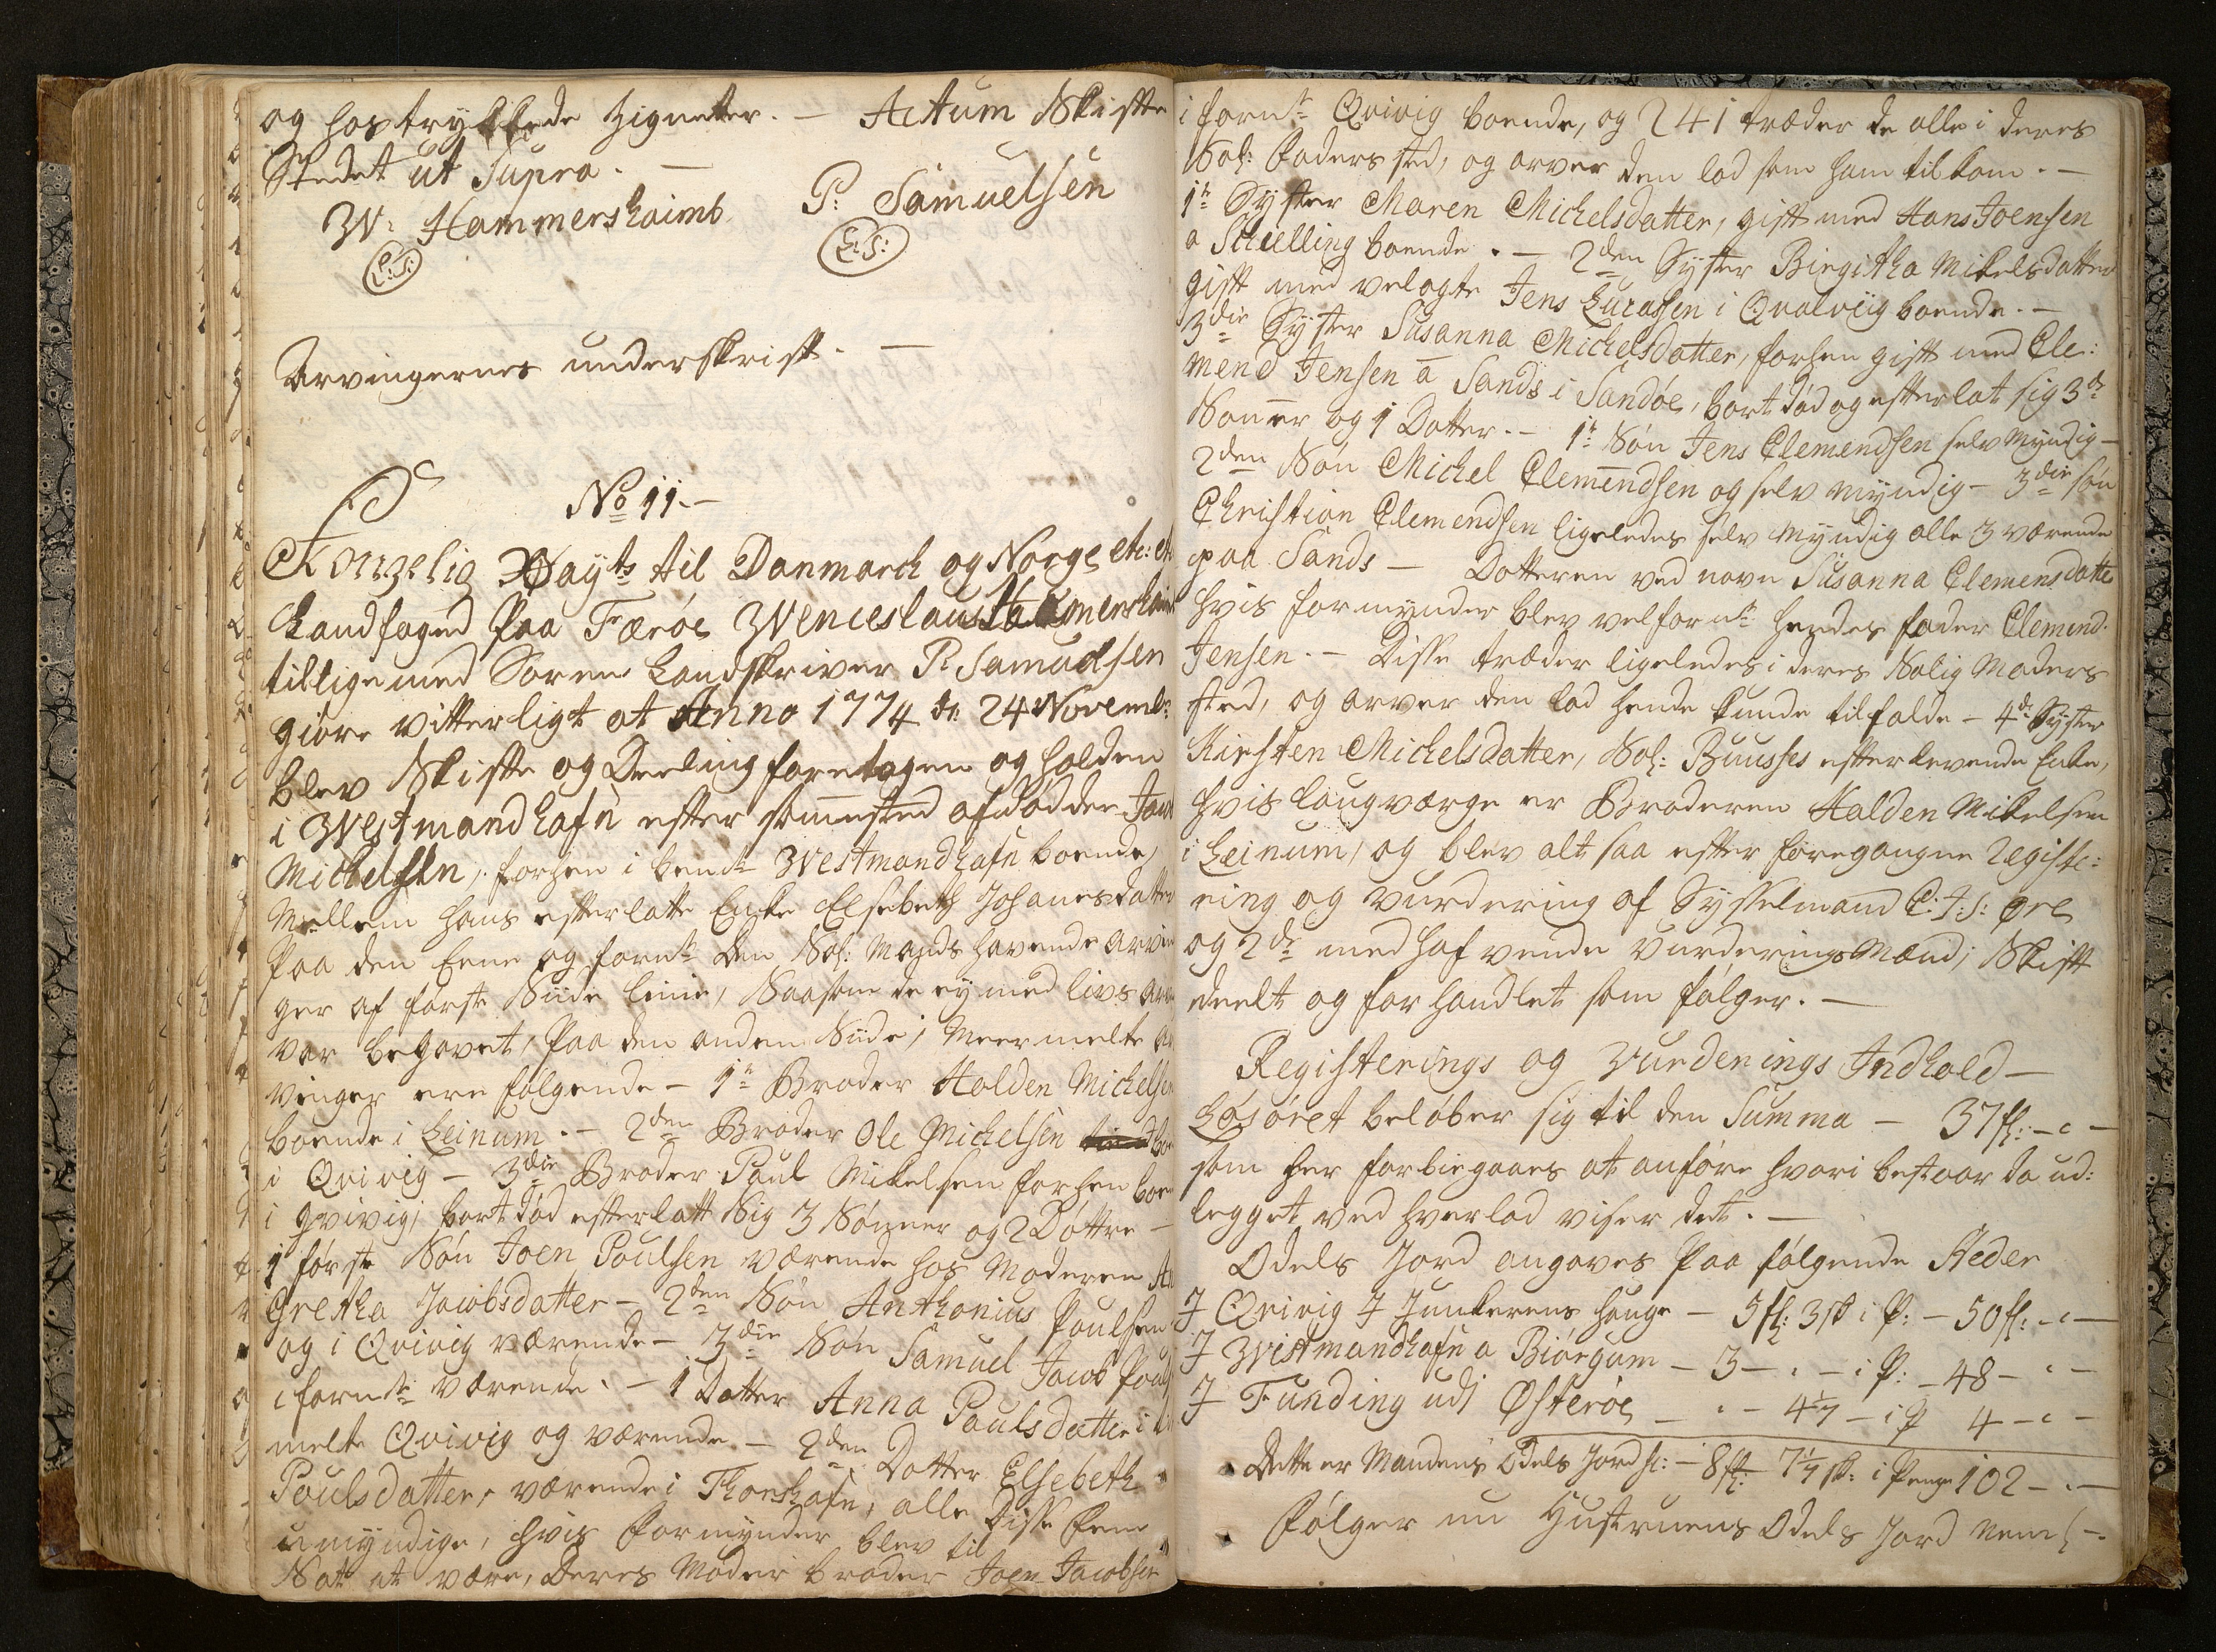 og hostrykkede Zigneter. — Actum Skifte
Stedet ut Supra. —
W: Hammershaimb P: Samuelsen
L:S: L:S:
Arvingernes underskrift. —
No 11.—
Kongelig Mayts til Danmarck og Norge etc: etc
Landfoged paa Færöe Wenceslaus Hammershaimb
tillige med Soren Landskriver P: Samuelsen
giöre vitterligt at Anno 1774 d: 24 Novembr:
blev Skifte og Deeling foretagen og holden
i Westmandhafn efter sammested afdödde
Michelsen, forhen i bemte Westmandhafn boende,
Mellem hans efterlatte Enke Elsebeth Johanesdatter
paa den Eene og fornte den Sal: Mands havende arvin
ger af förste Siide linie, Saasom de ey med livs
var begavet, paa den anden Siide, Meermelte Ar
vinger ere fölgende — 1te Broder Halden Michelsen
boende i Leinum. — 2den Broder Ole Michelsen
i Qvivig — 3die Broder Paul Mikelsen forhen boen
i Qvivig, bortdöd efterlatt Sig 3 Sönner og 2 Döttre —
1 förste Sön Joen Poulsen værende hos Moderen
Gretha Jacobsdatter — 2den Sön Anthonius Poulsen
og i Qvivig værende — 3die Sön Samuel Jacob
i fornte værende. — 1 Datter Anna Poulsdatter i
melte Qvivig og værende — 2den Datter Elsebeth
Poulsdatter, værende i Thorshafn, alle disse Fem
umyndige, hvis Formynder blev til
Sat at være, Deres Moder broder Joen Jacobsen
i fornte Qvivig boende, og 241 træder de alle i deres
Sal: Faders sted, og arver den lod som ham tilkom. —
1te Syster Maren Michelsdatter, gift med Hans Joensen
a Schielling boende. — 2den Syster Birgitha Mikelsdatter
gift med velagte Jens Lucassen i Qvalviig boende. —
3die Syster Susanna Michelsdatter, forhen gift med Cle:
mend Jensen a Sands i Sandöe, bortdöd og efterlat sig 3de
Sönner og 1 Datter. — 1te Sön Jens Clemendsen selv Myndig —
2den Sön Michel Clemendsen og selv myndig — 3die sön
Christian Clemendsen ligeledes selv Myndig alle 3 værende
paa Sands — Datteren ved navn Susanna Clemensdatte
hvis formynder blev velfornte hendes fader Clemend
Jensen. — Disse træder ligeledes i deres Salig Moders
sted, og arver den lod hende kunde tilfalde — 4de Syster
Kirsten Michelsdatter, Sal: Buusses efterlevende Enke,
hvis laugværge er Broderen Halden Mikelsen
i Leinum, og blev alt saa efter foregangne Registe:
ring og Vurdering af Sysselmand C: J: S: Øre
og 2de med hafvende Vurderings Mænd, Skift
deelt og forhandlet som fölger. —
Registerings og Vurderings Indhold —
Lösöret belöber sig til den Summa — 37 fl: — „ —
som her forbiegaaes at anföre hvori bestaar da ud:
legget ved hver lod viser det. —
Odels Jord angaves paa fölgende Steder
I Qvivig I Junkerens hauge — 5 fl: 3 sk i P: — 50 fl: — „ —
I Westmandhafn a Biörgum — 3 — „ — i P: — 48 — „ —
I Funding udi Østeröe — „ — 4 1/7 — i P 4 — „ —
Dette er Mandens Odels Jord sc: — 8 fl: 7 1/7 sk: i Penge 102 — „ —
Fölger nu Hustruens Odels Jord Neml: —